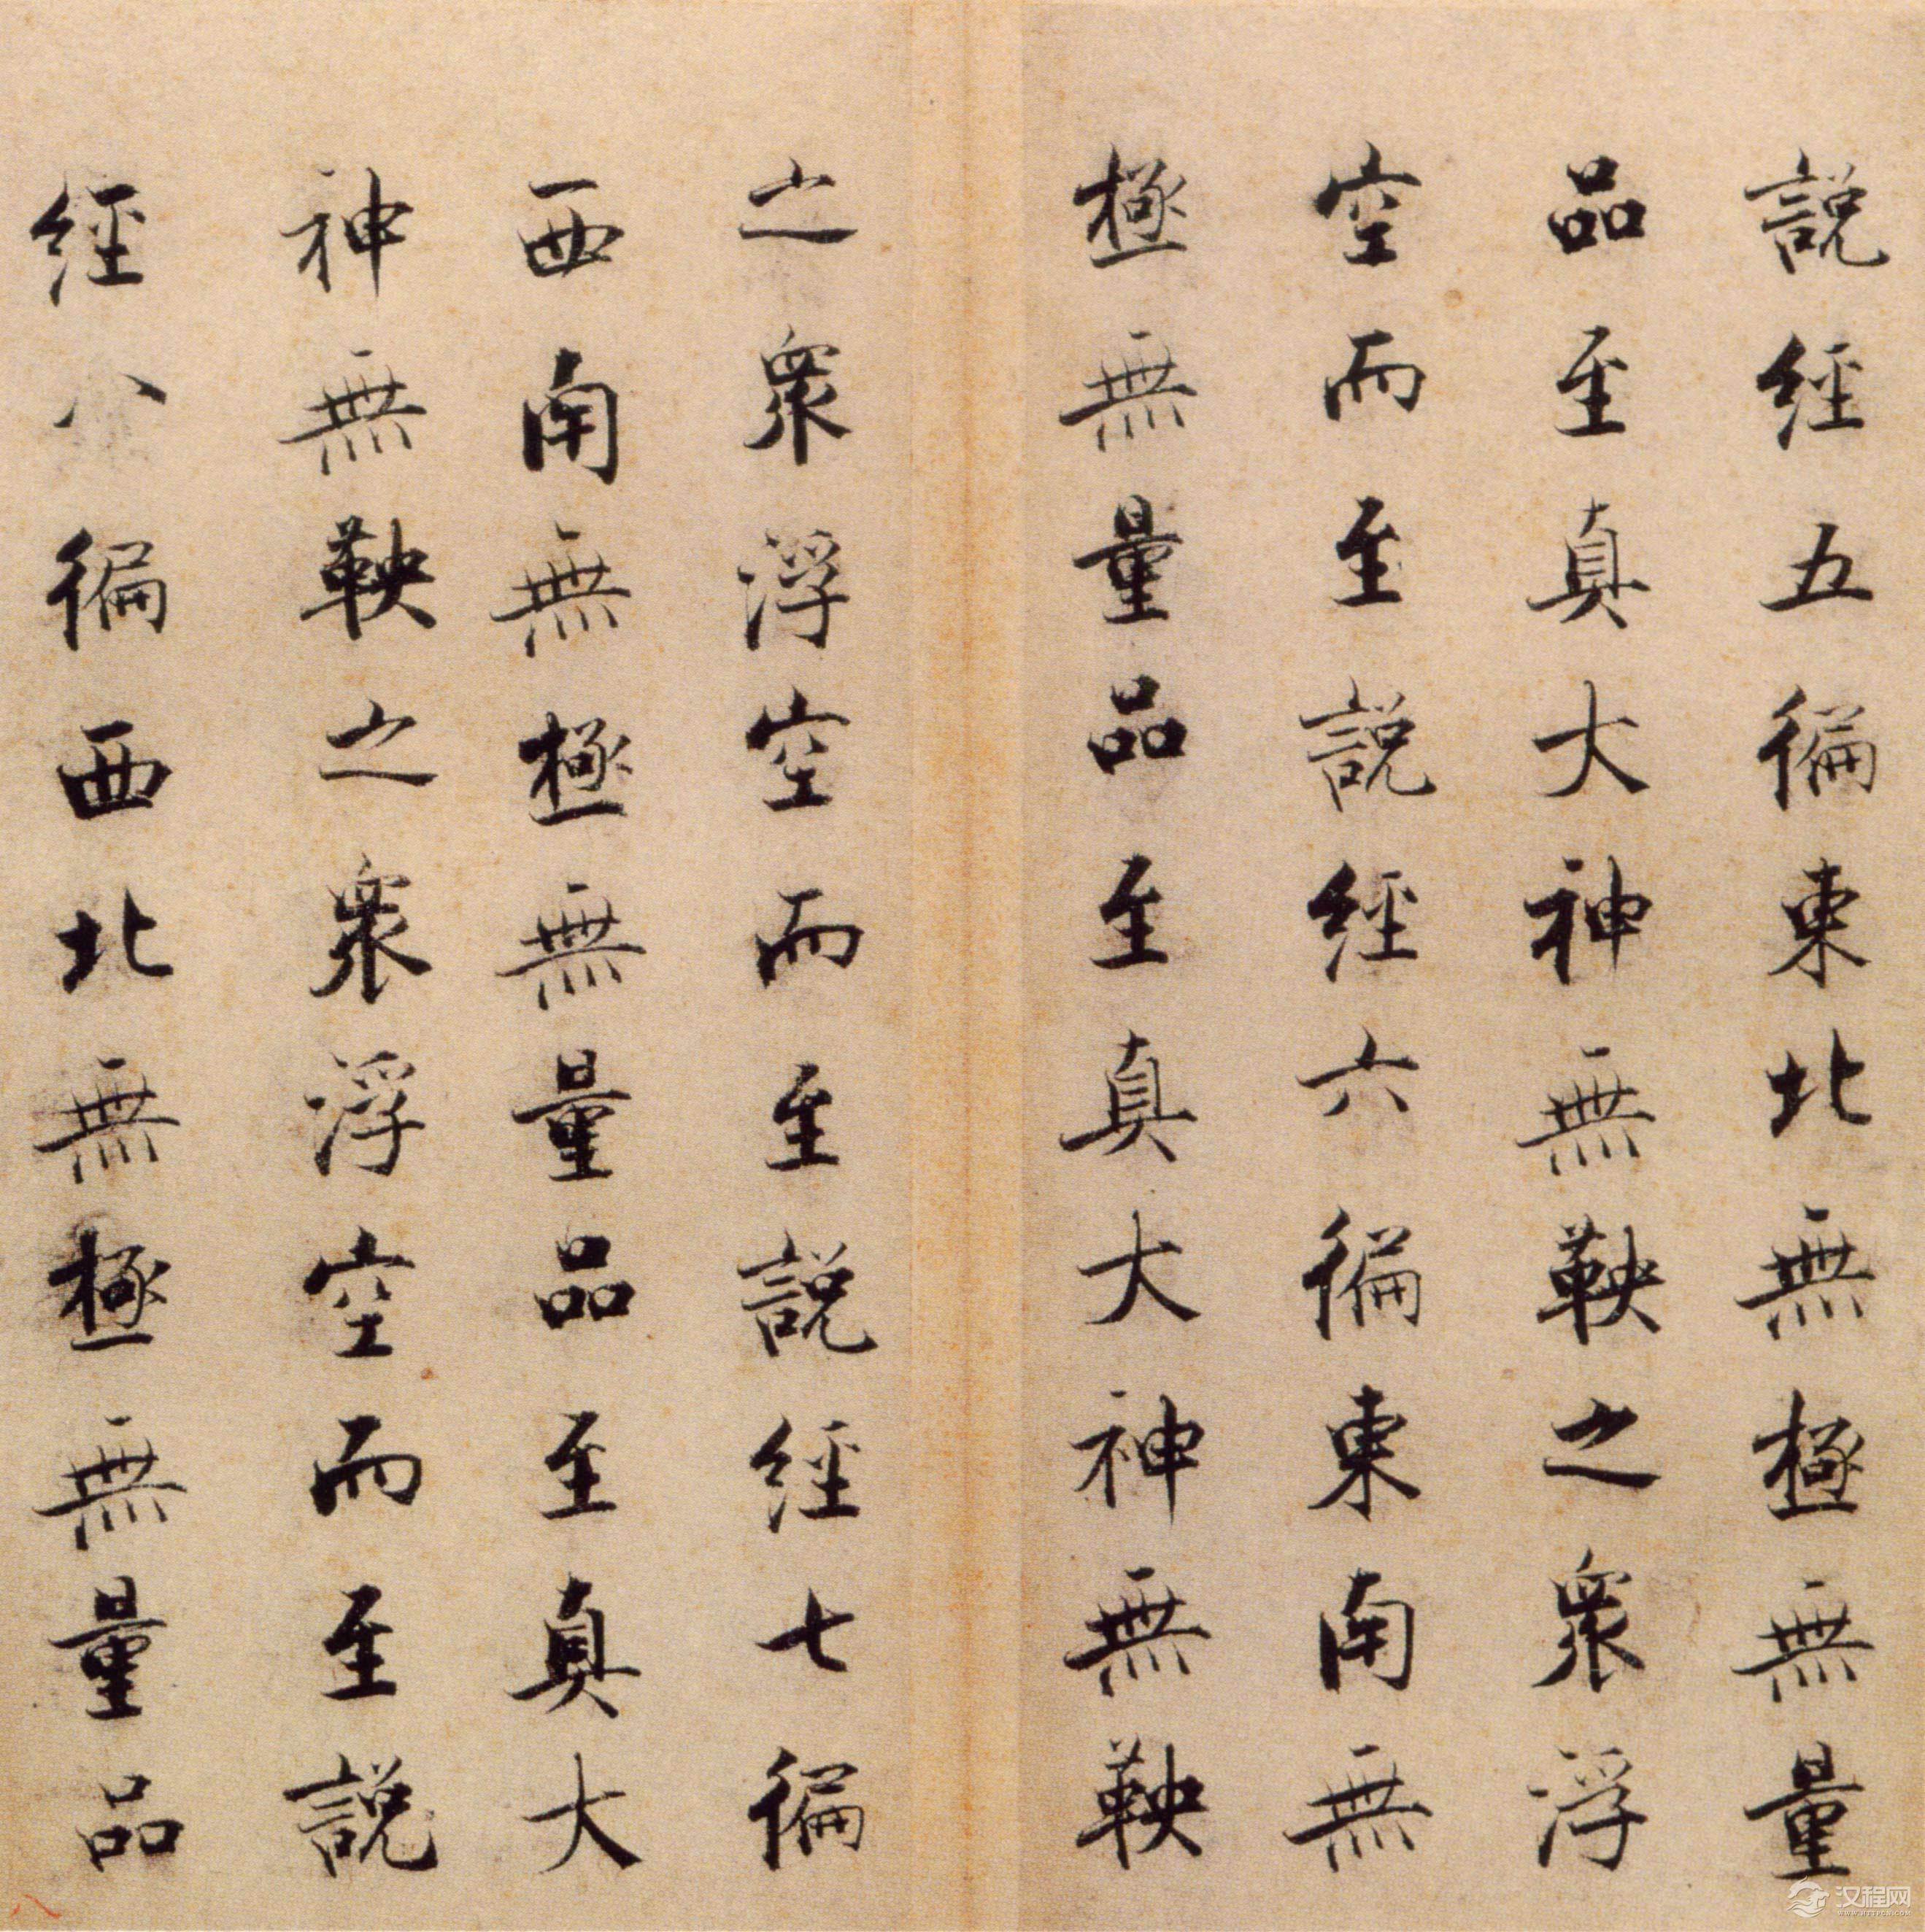 說經五徧東北無極無量
品至真大神無鞅之衆浮
空而至說經六徧東南無
極無量品至真大神無鞅
之衆浮空而至說經七徧
西南無極無量品至真大
神無鞅之衆浮空而至說
經八徧西北無極無量品
八
汉程网